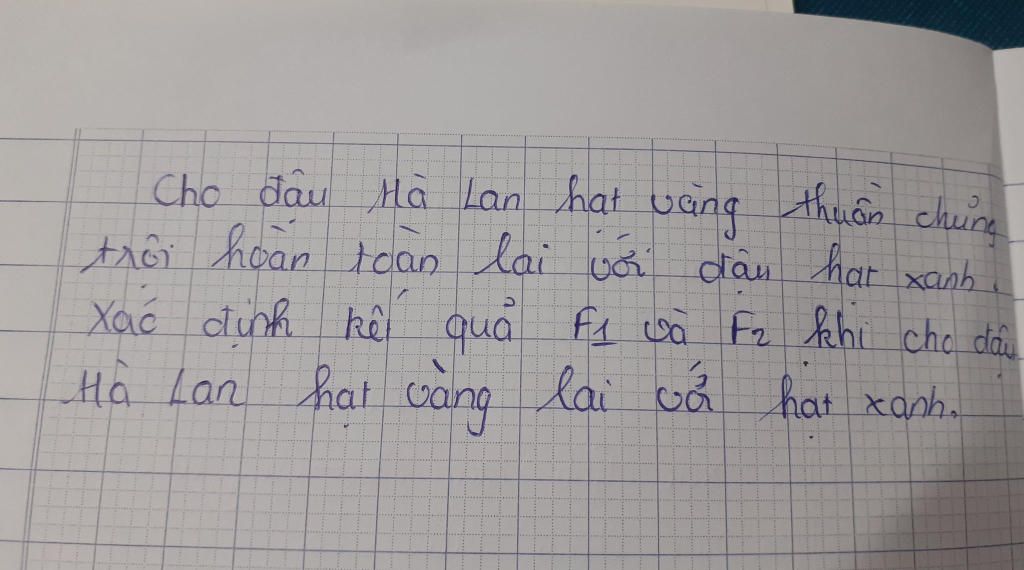 Cho đậu Hà Lan hạt vàng thuần chủng
trội hoàn toàn lai với đậu hạt xanh.
Xác định kết quả F1 và F2 khi cho đậu
Hà Lan hạt vàng lai với hạt xanh.